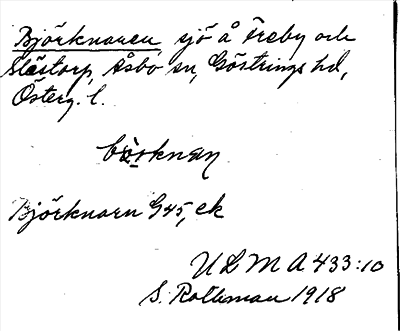 Björknaren sjö å Freby och
Slästorp, Åsbo sn, Göstrings hd,
Österg. l.
börknan
Björknarn G45, ek
ULMA 433:10
S. Rothman 1918